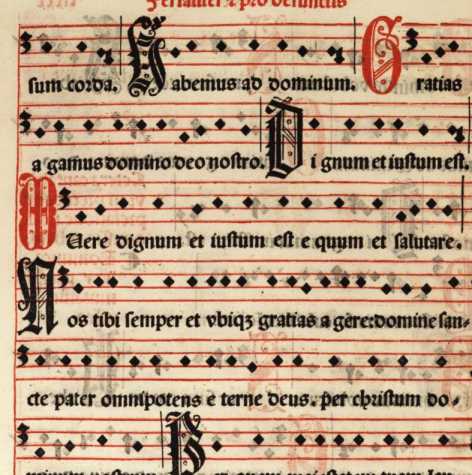 Ferialiter et pro defunctis
sum corda. Habemus ad dominum. Gratias
agamus domino deo nostro. Dignum et iustum est.
Uere dignum et iustum est equum et salutare.
Nos tibi semper et vbiqꝫ gratias agere: domine san-
cte pater omnipotens eterne deus. per christum do-